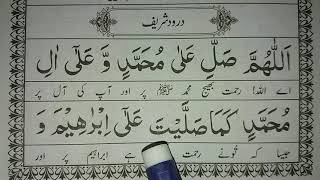 درود شریف
اَللّٰهُمَّ صَلِّ عَلٰى مُحَمَّدٍ وَّ عَلٰٓى اٰلِ
اے اللہ! رحمت بھیج محمد ﷺ پر اور آپ کی آل پر
مُحَمَّدٍ كَمَا صَلَّيْتَ عَلٰٓى اِبْرٰهِيْمَ وَ
جیسا کہ تونے رحمت ہے ابراہیم پر اور